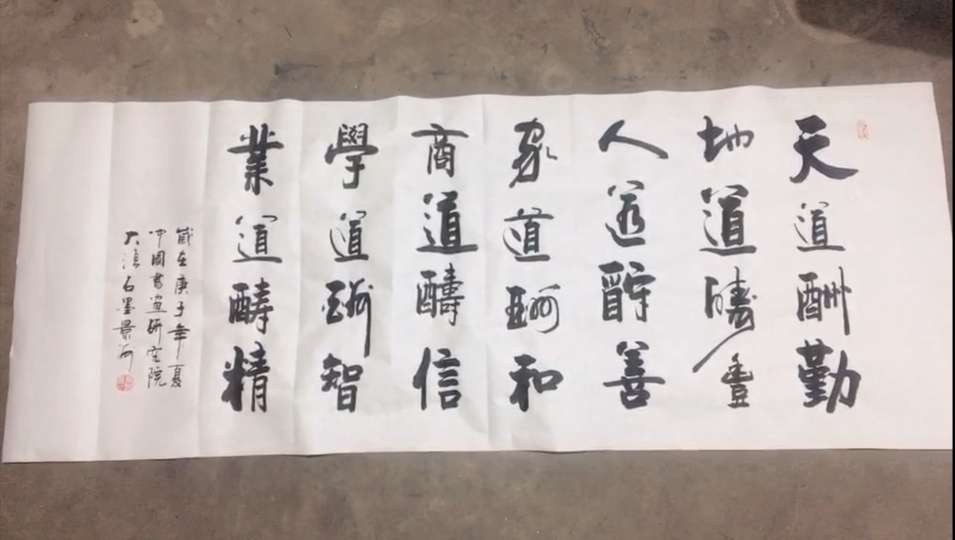 天道酬勤
地道酬豐
人道酬善
家道酬和
商道醻信
學道酬智
業道醻精
歲在庚子年夏
中國書画研究院
石墨景河